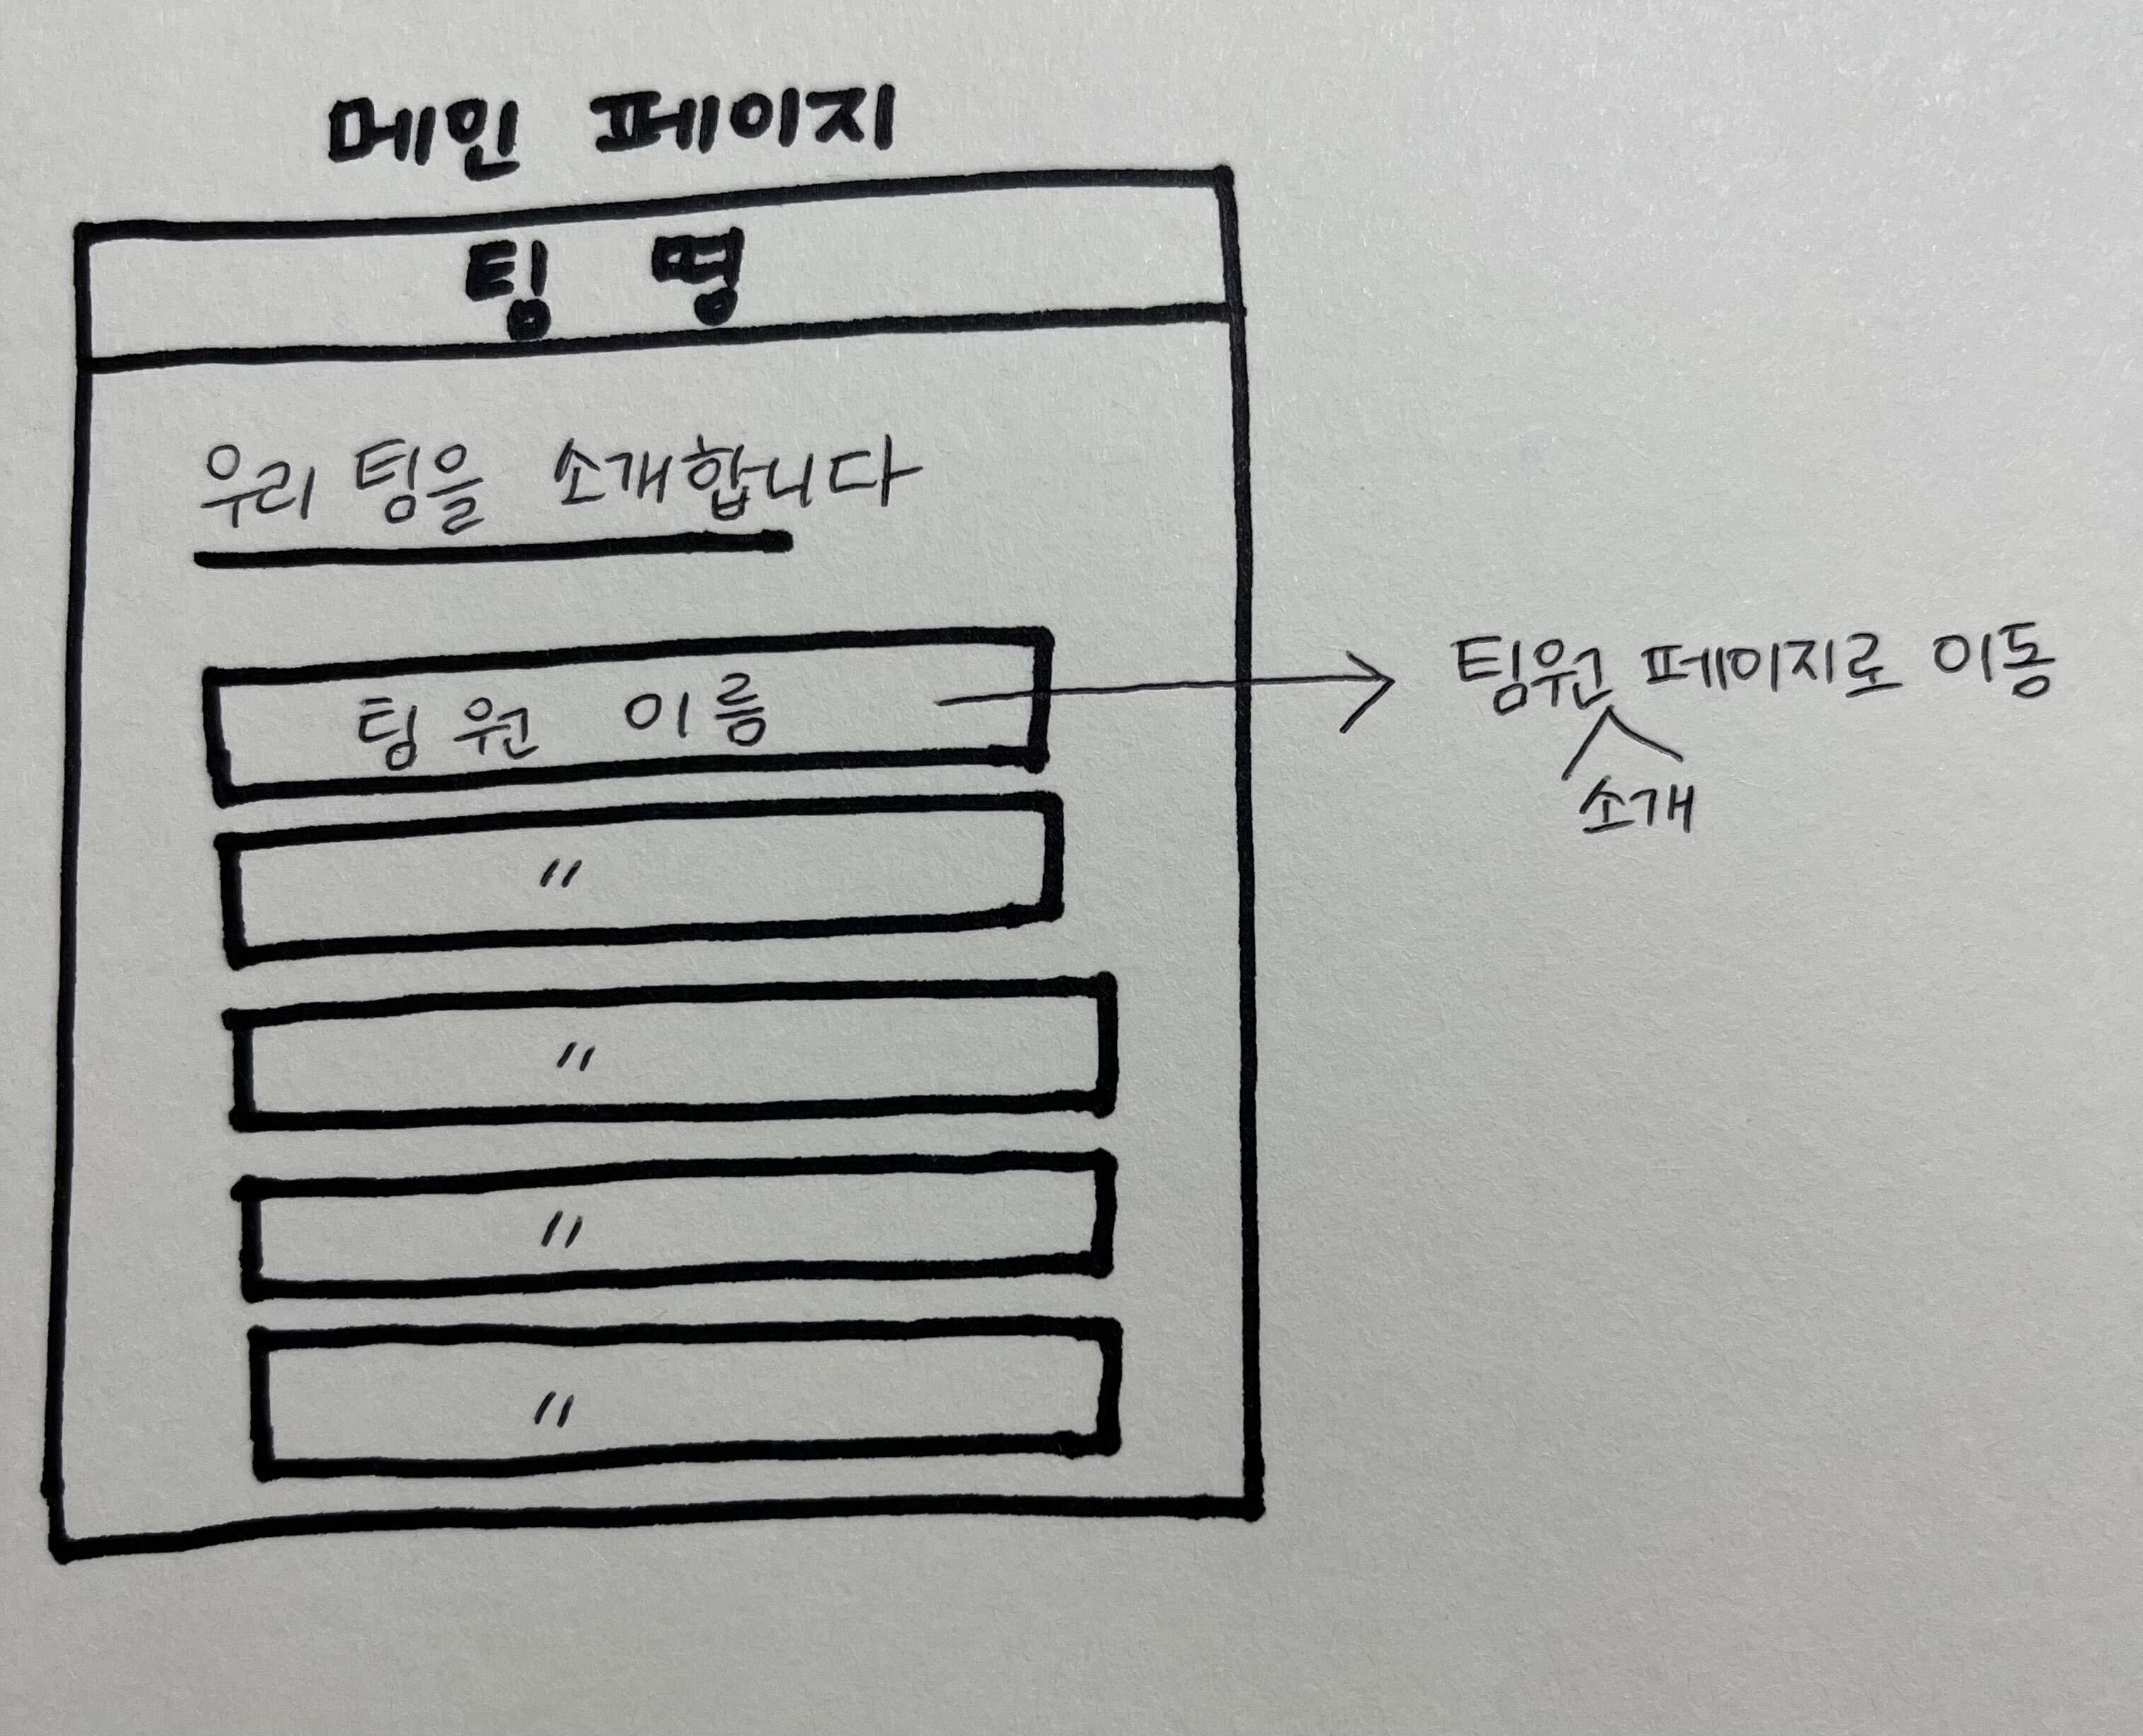 메인 페이지
팀 명
우리 팀을 소개합니다
팀원 이름
팀원 페이지로 이동
소개
〃
〃
〃
〃